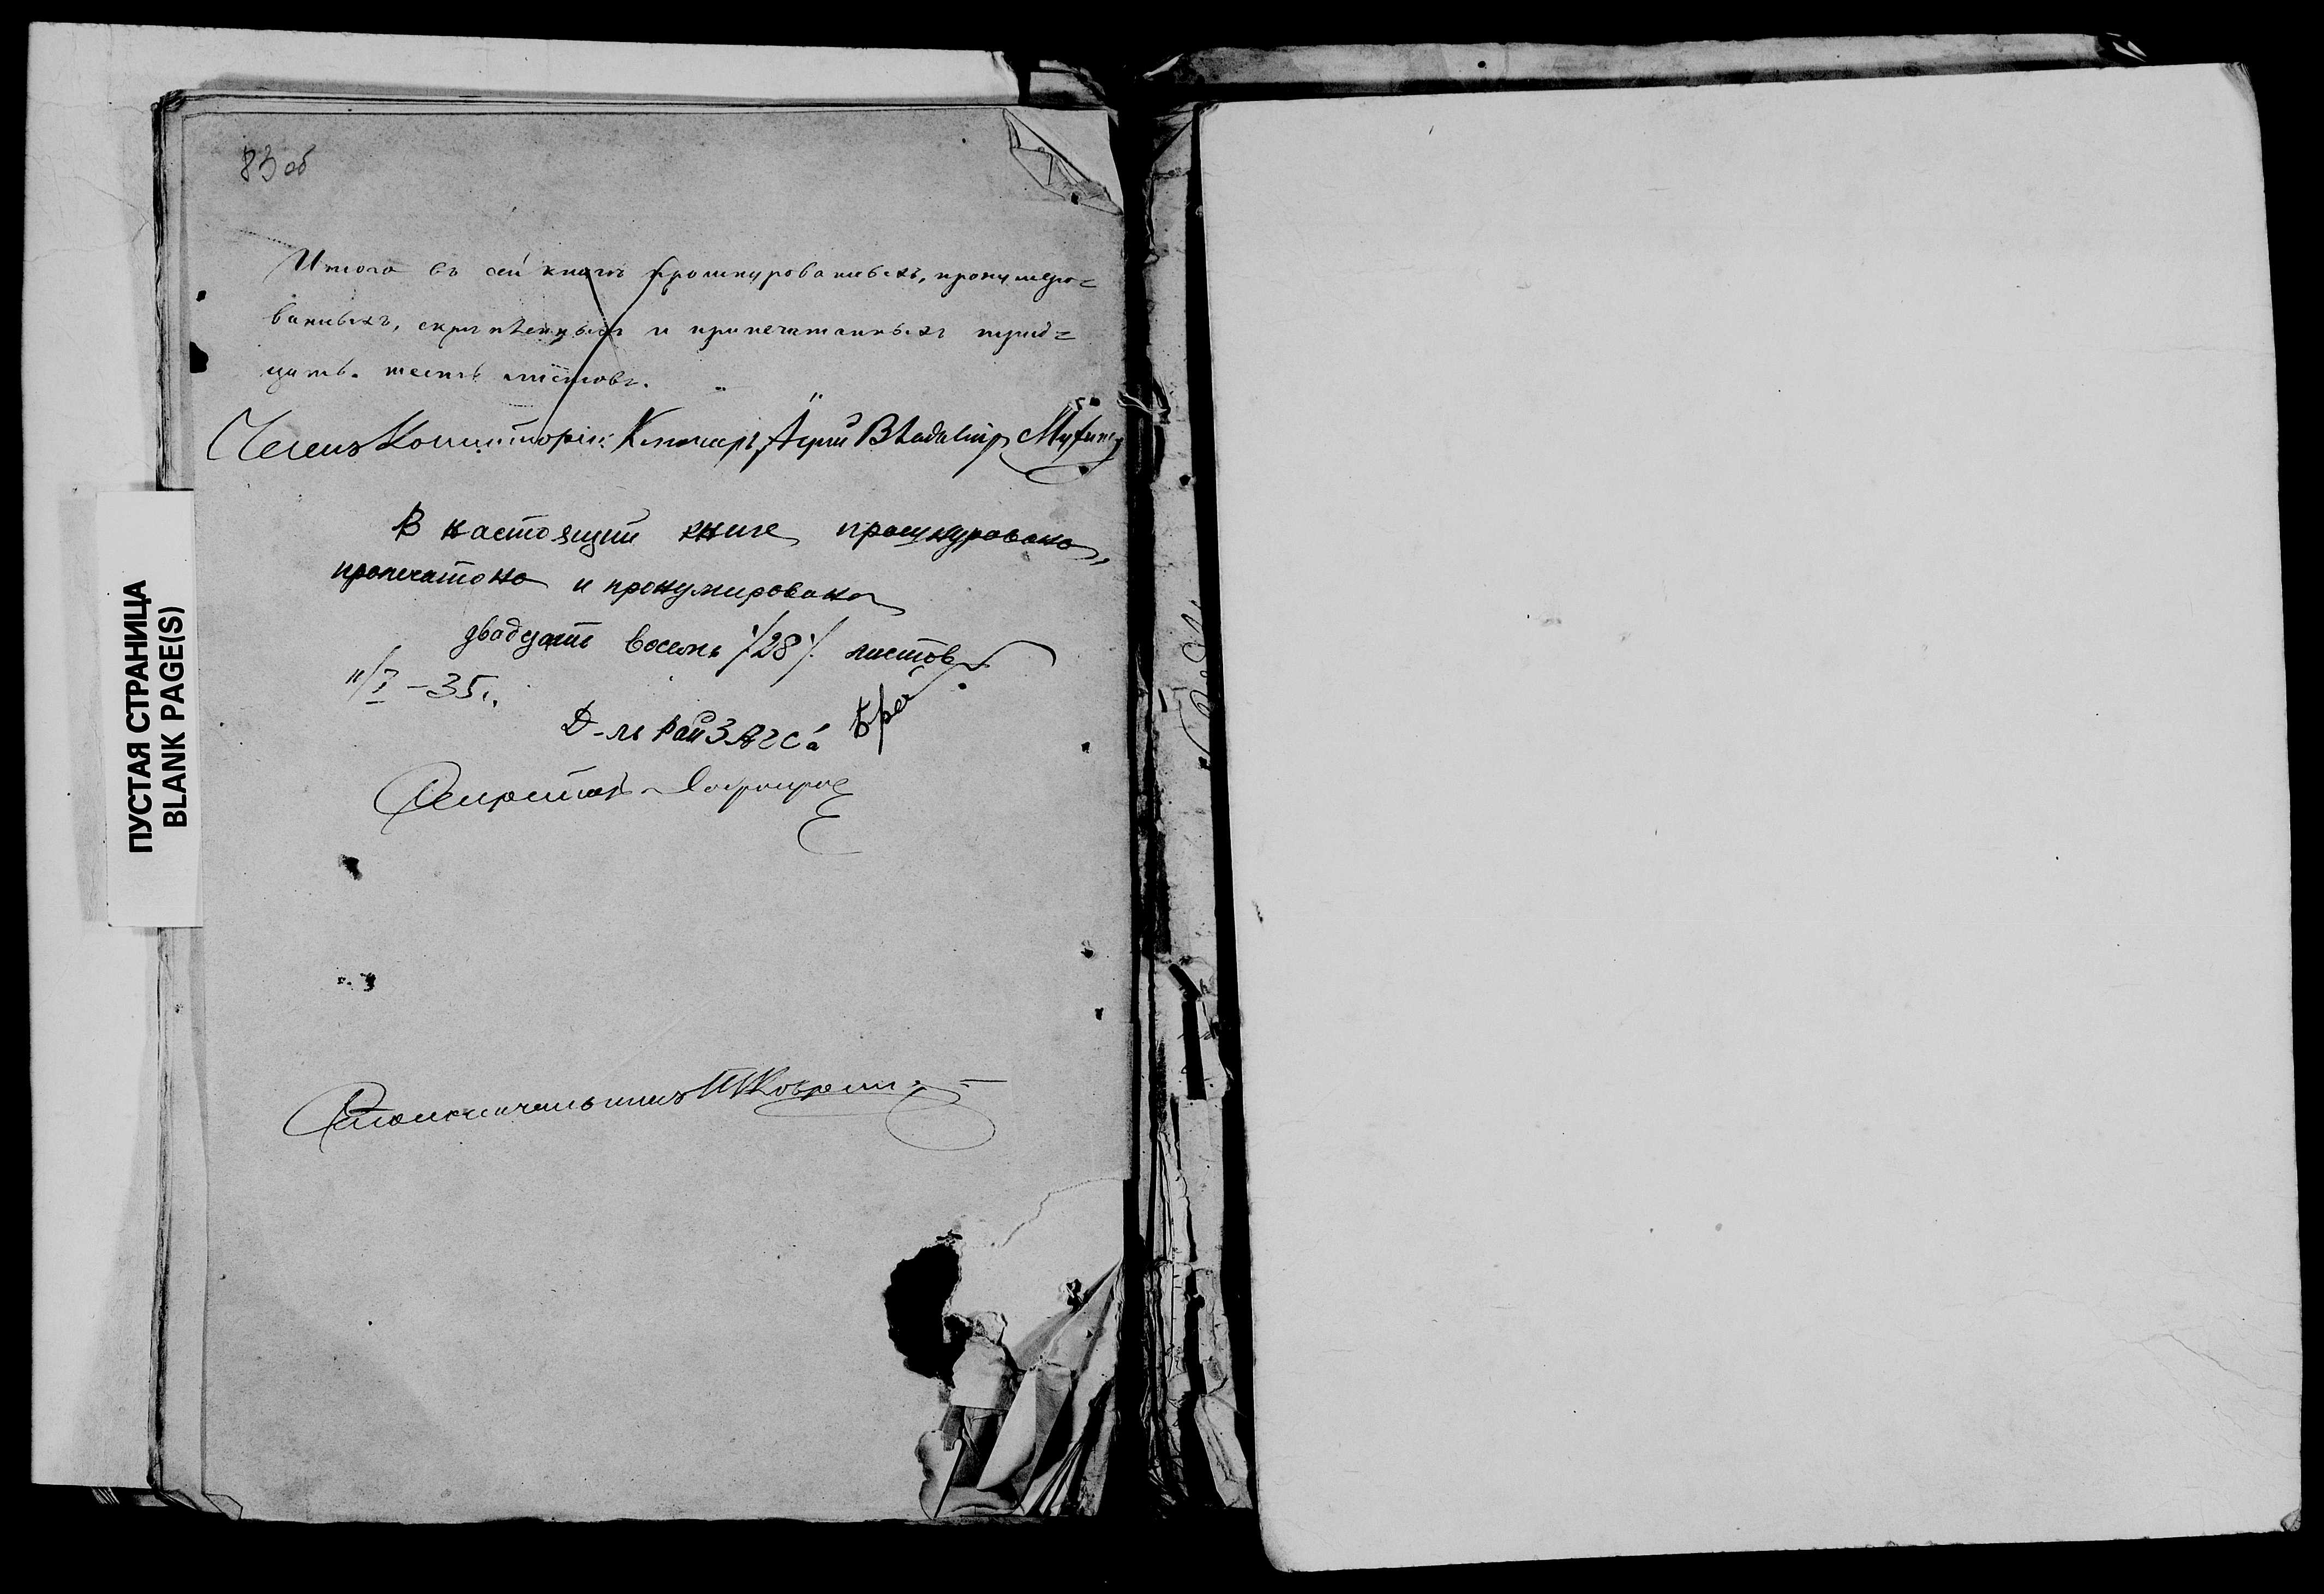 83 об
Итого въ сей книгѣ прошнурованныхъ, пронумеро-
ванныхъ, скрѣпленныхъ и припечатанныхъ трид-
цать шесть листовъ.
Членъ Консисторіи: Ключарь, Іерей Владимір
В настоящий книге прошнуровано,
пропечатоно и пронумировано
двадцать восемь /28/. листов
11/I-35г.
Д-ль РайЗАГСа
Секретарь
Столоначальникъ
ПУСТАЯ СТРАНИЦА
BLANK PAGE(S)